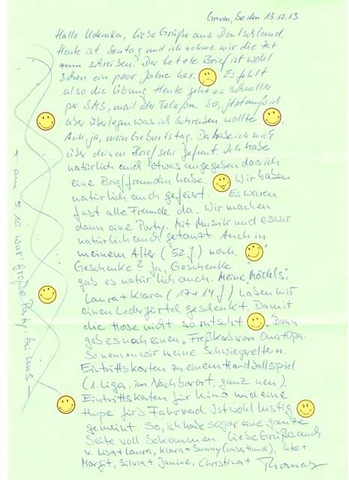 Greven, den 13.10.13
Hallo liebe Grüße aus Deutschland
Heute ist Sontag und ich nehme mir die Zeit
zum schreiben. Der letzte Brief ist wohl
schon ein paar Jahre her. Es fehlt
also die Übung. Heute geht es schneller
per SMS, mail oder Telefon. So,
aber überlegen was ich schreiben wollte
Ach ja, mein Geburtstag. Da habe ich mich
über deinen Brief sehr gefreut. Ich habe
natürlich auch etwas angegeben das ich
eine Brieffreundin habe. Wir haben
natürlich auch gefeiert. Es waren
fast alle Freunde da. Wir machen
dann eine Party. Mit Musik und es wir
natürlich auch getanzt. Auch in
meinem Alter (52 J) noch.
Geschenke? Ja, Geschenke
gab es natürlich auch. Meine Mädels,
Laura + Klara (17 + 14 J) haben mir
einen Ledergürtel geschenkt. Damit
die Hose nicht so rutscht. Dann
gab es noch einen Freßkorb von Oma + Opa.
So nennen wir meine Schwiegereltern.
Eintrittskarten zu einem Handballspiel
(1. Liga, im Nachbarort, ganz neu).
Eintrittskarten für Kino und eine
Hupe für's Fahrrad ist wohl lustig
gemeint. So, ich habe sogar eine ganze
Seite voll bekommen. Liebe Grüße auch
v. Lisa + Laura, Klara + Sunny Ute +
Margit, Silvia + Janine, Christina + Thomas
am 5.10. war große Party bei uns